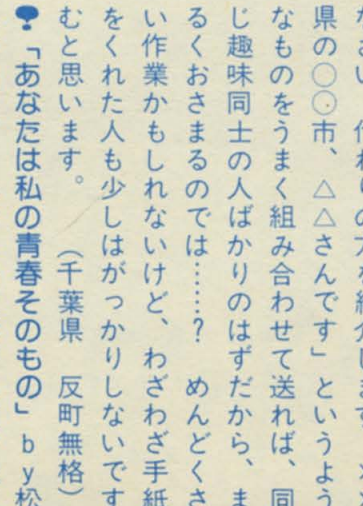 県の○○市、△△さんです」というよう
なものをうまく組み合わせて送れば、同
じ趣味同士の人ばかりのはずだから、ま
るくおさまるのでは……？　めんどくさ
い作業かもしれないけど、わざわざ手紙
をくれた人も少しはがっかりしないです
むと思います。　（千葉県　反町無格）
「あなたは私の青春そのもの」by松